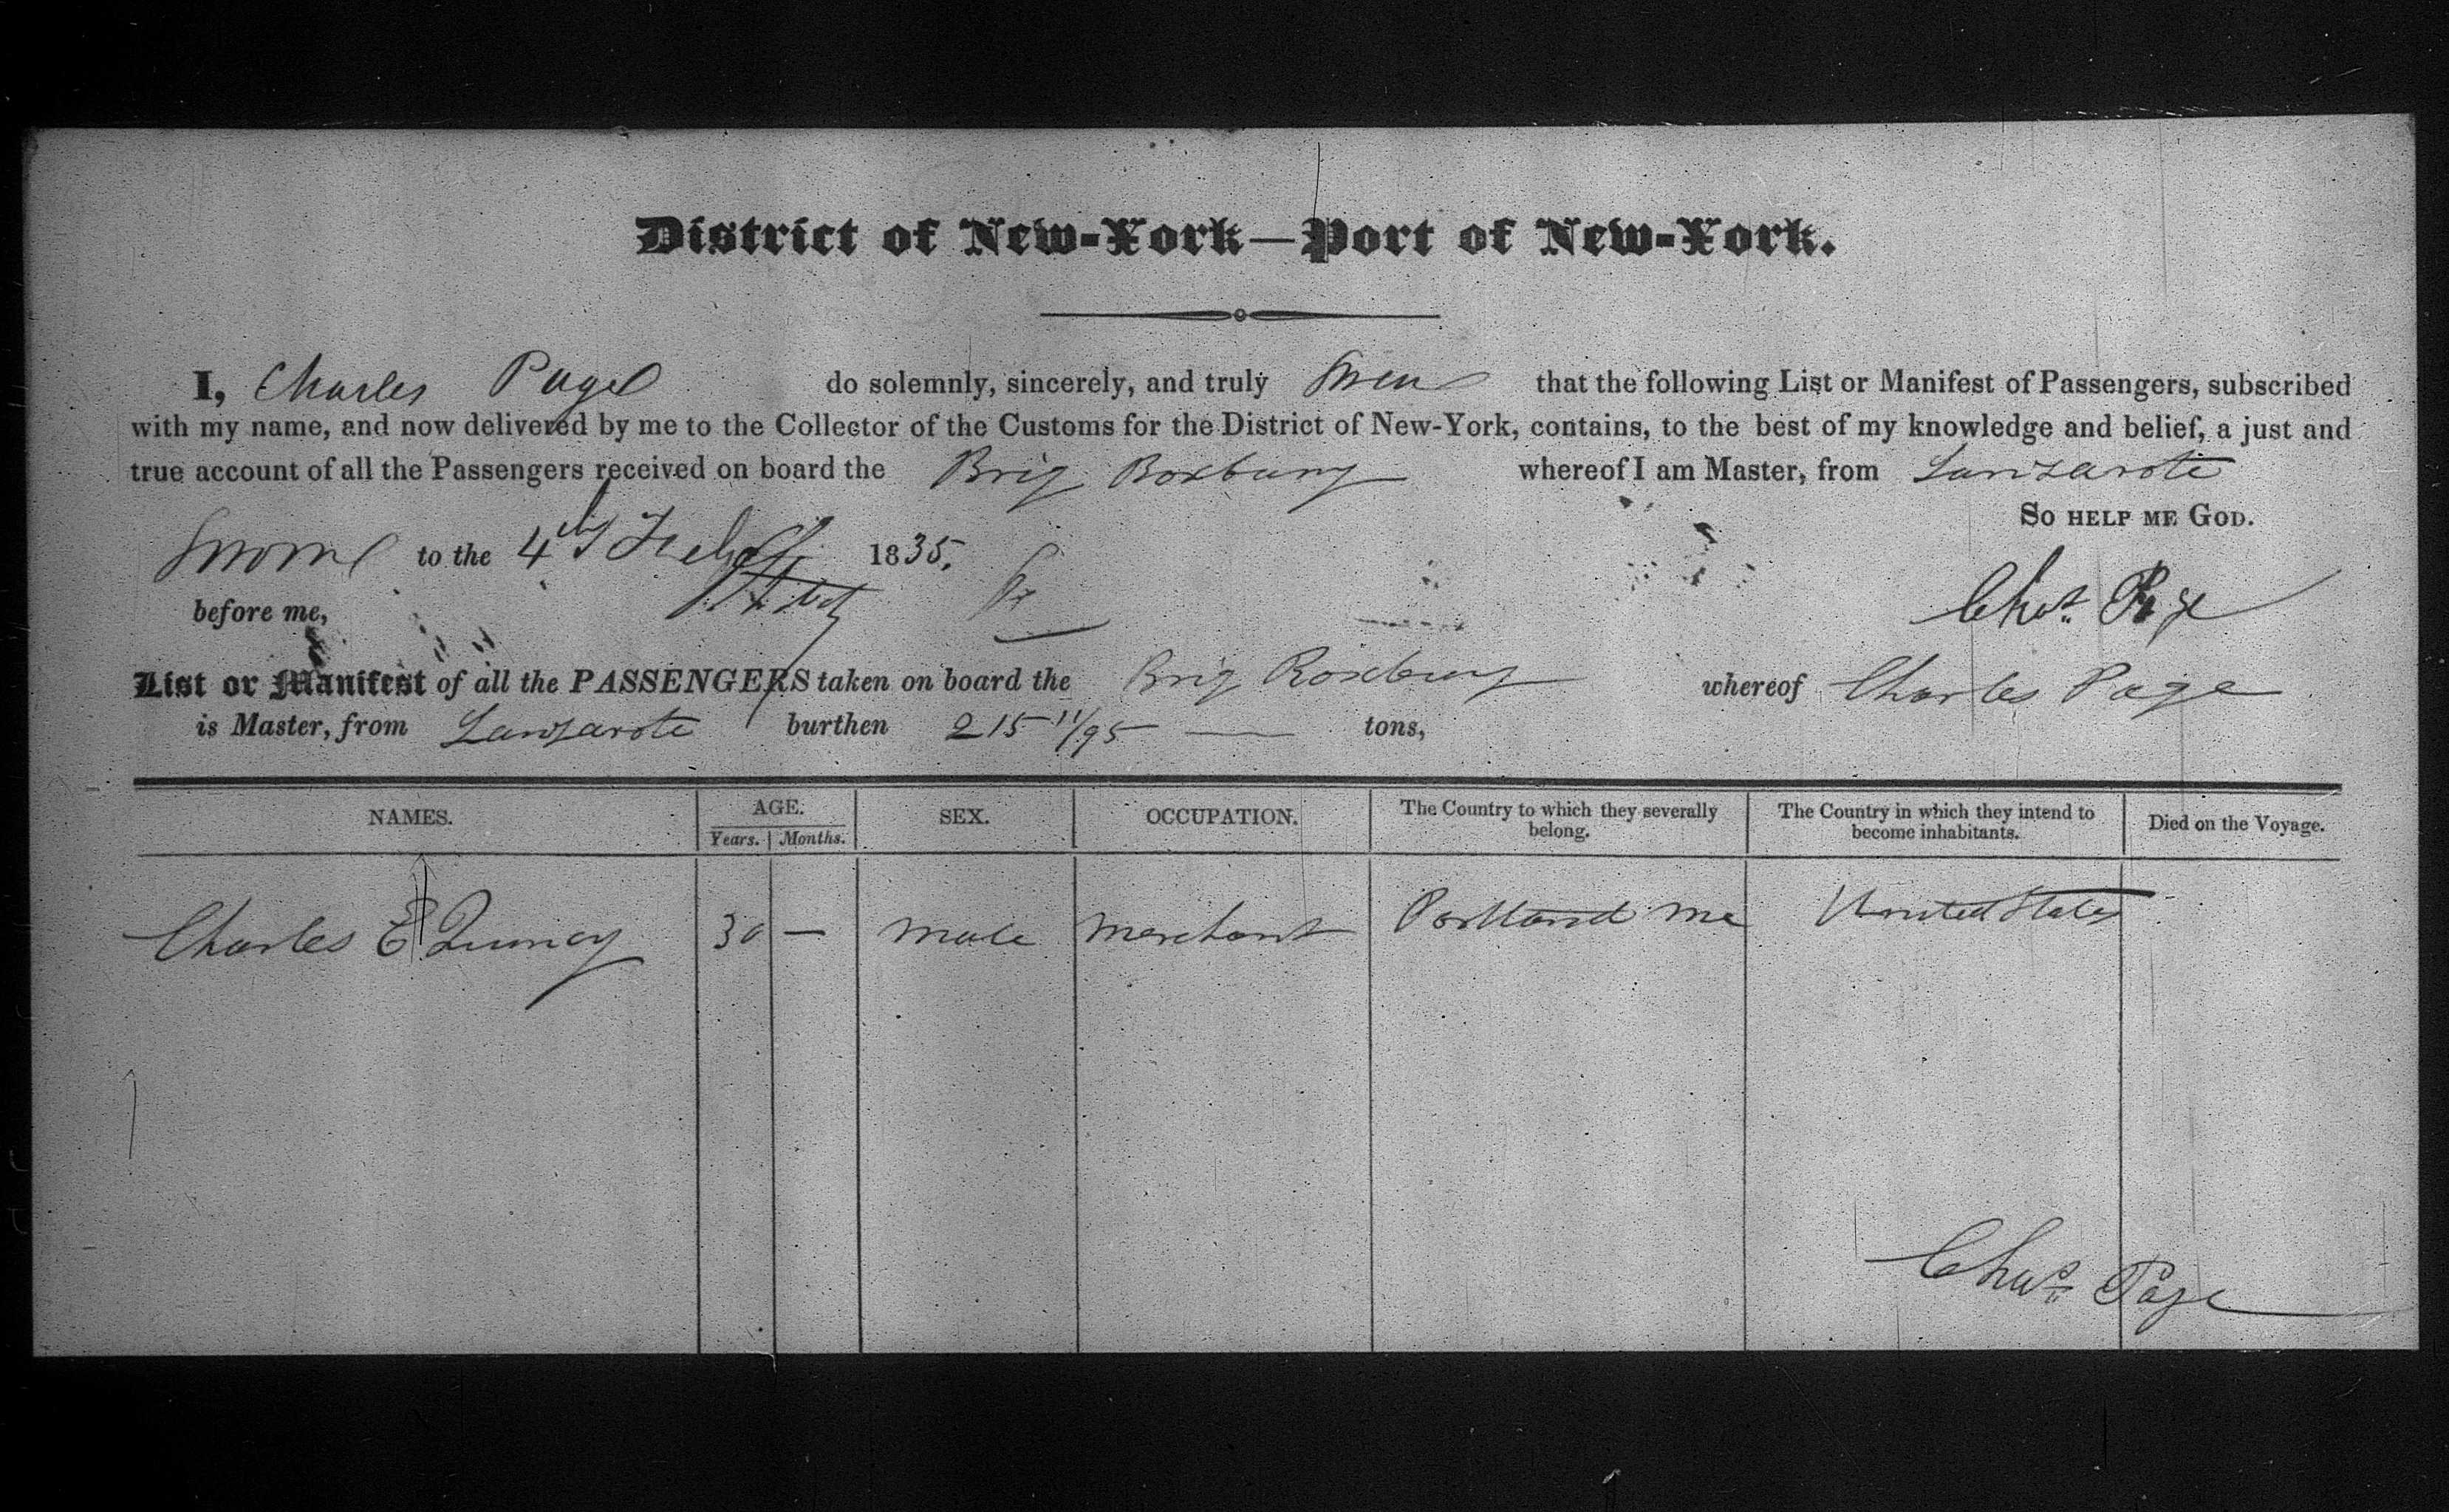 District of New-York—Port of New-York.
I, Charles Page do solemnly, sincerely, and truly Swear that the following List or Manifest of Passengers, subscribed
with my name, and now delivered by me to the Collector of the Customs for the District of New-York, contains, to the best of my knowledge and belief, a just and
true account of all the Passengers received on board the Brig Roxbury whereof I am Master, from Lanzarote
So help me God.
Sworn to the 4th Feby 1835.
before me, Chas. Page
List or Manifest of all the PASSENGERS taken on board the Brig Roxbury whereof Charles Page
is Master, from Lanzarote burthen 215 11/95 tons,
NAMES. AGE. SEX. OCCUPATION. The Country to which they severally belong. The Country in which they intend to become inhabitants. Died on the Voyage.
Years. Months.
Charles E Quincy 30 — male merchant Portland Me United States
Chas. Page